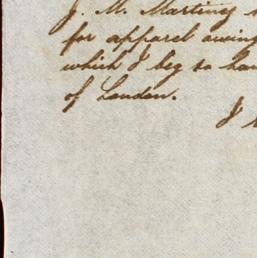 J. M. Martinez
for apparel owing
which I beg to
of London.
I